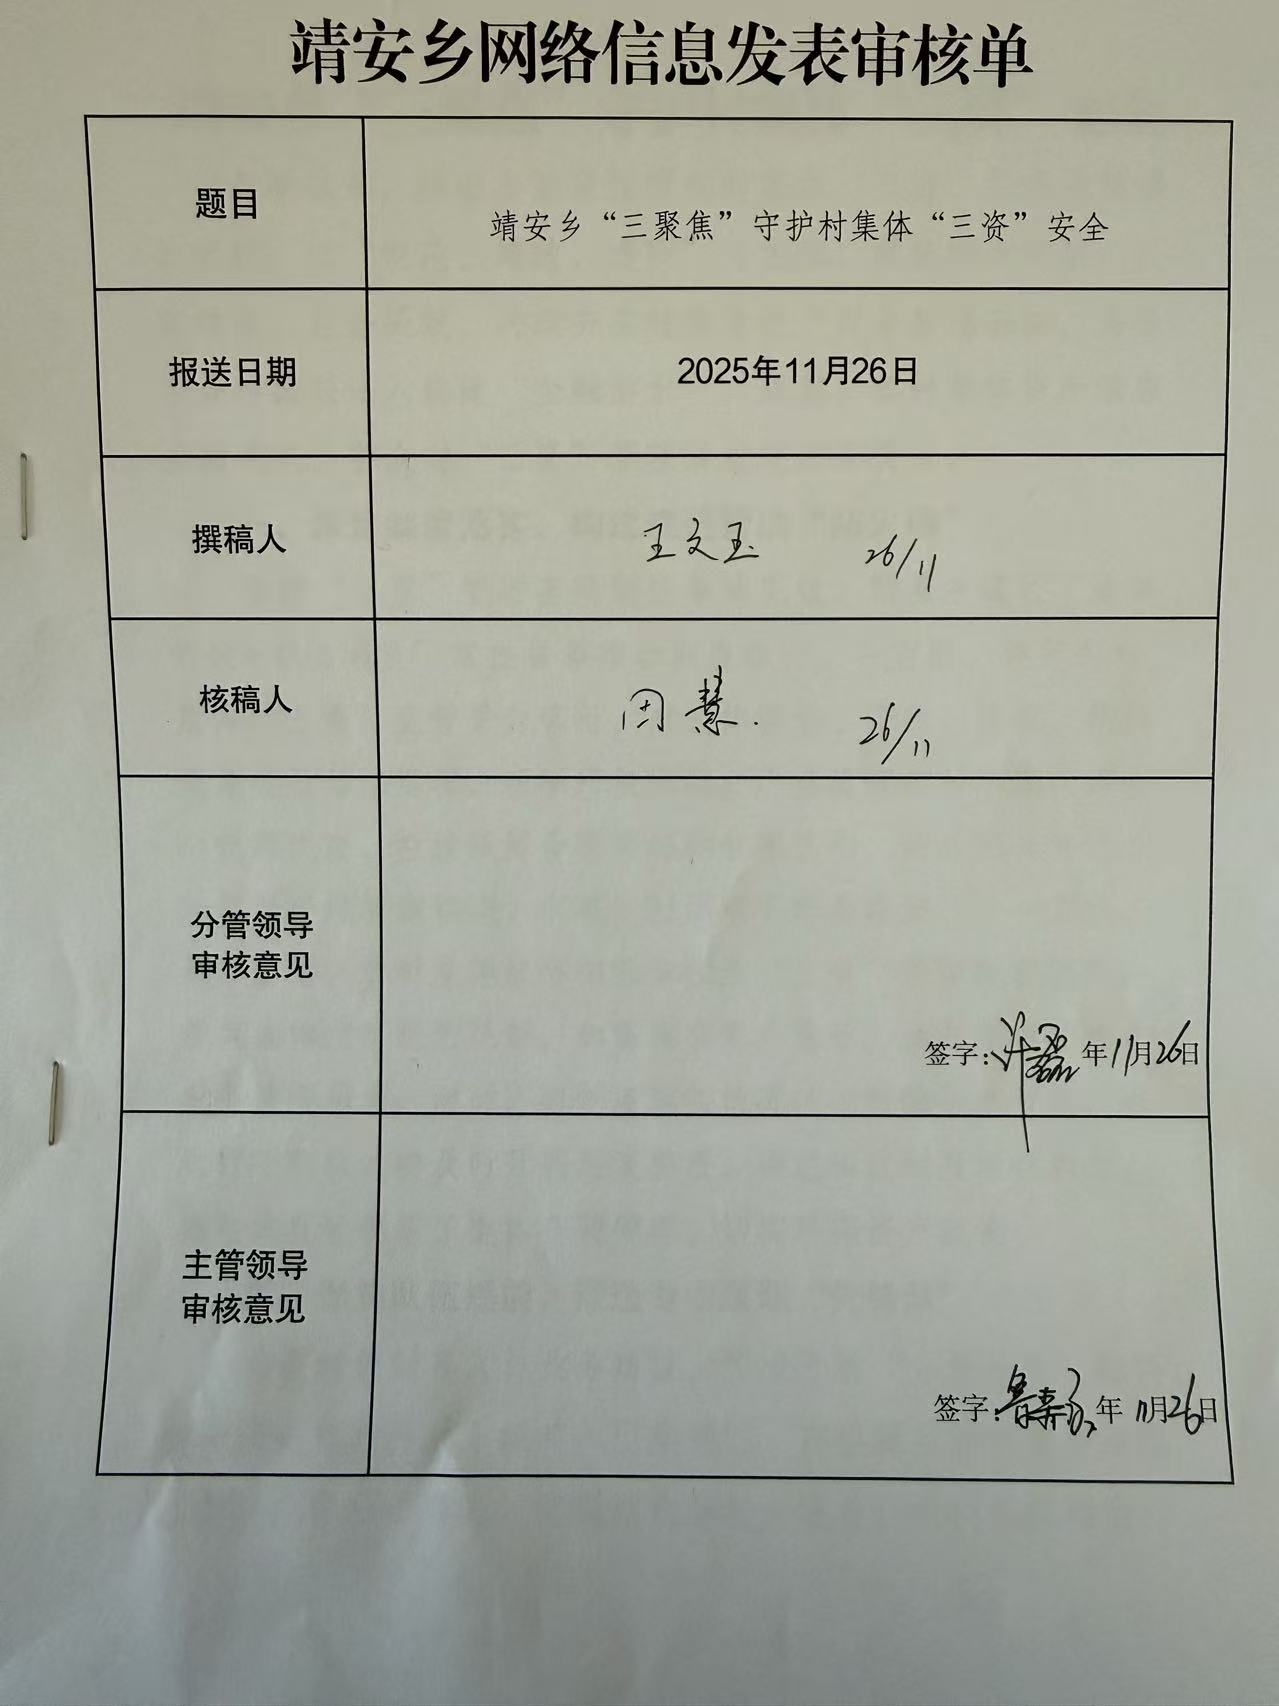 靖安乡网络信息发表审核单
题目
靖安乡“三聚焦”守护村集体“三资”安全
报送日期
2025年11月26日
撰稿人
王文玉 26/11
核稿人
周慧. 26/11
分管领导
审核意见
签字: 许磊 年11月26日
主管领导
审核意见
签字: 年11月26日